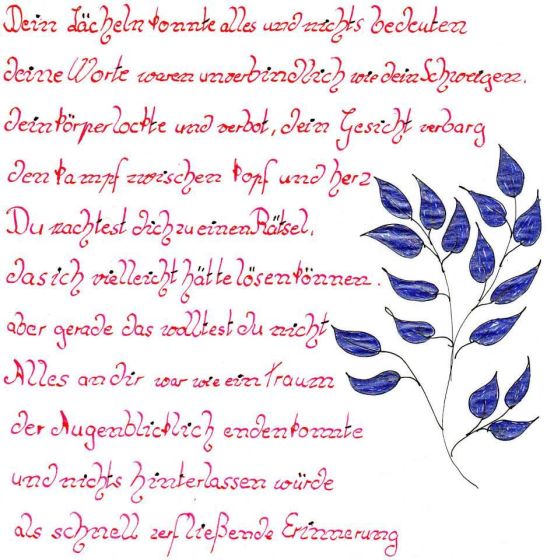 Dein Lächeln konnte alles und nichts bedeuten
deine Worte waren unverbindlich wie dein Schweigen.
dein körper lockte und verbot, dein Gesicht verbarg
den kampf zwischen kopf und herz
Du machtest dich zu einen Rätsel,
das ich vielleicht hätte lösen können.
aber gerade das wolltest du nicht
Alles an dir war wie ein traum
der Augenblicklich enden konnte
und nichts hinterlassen würde
als schnell zerfließende Erinnerung